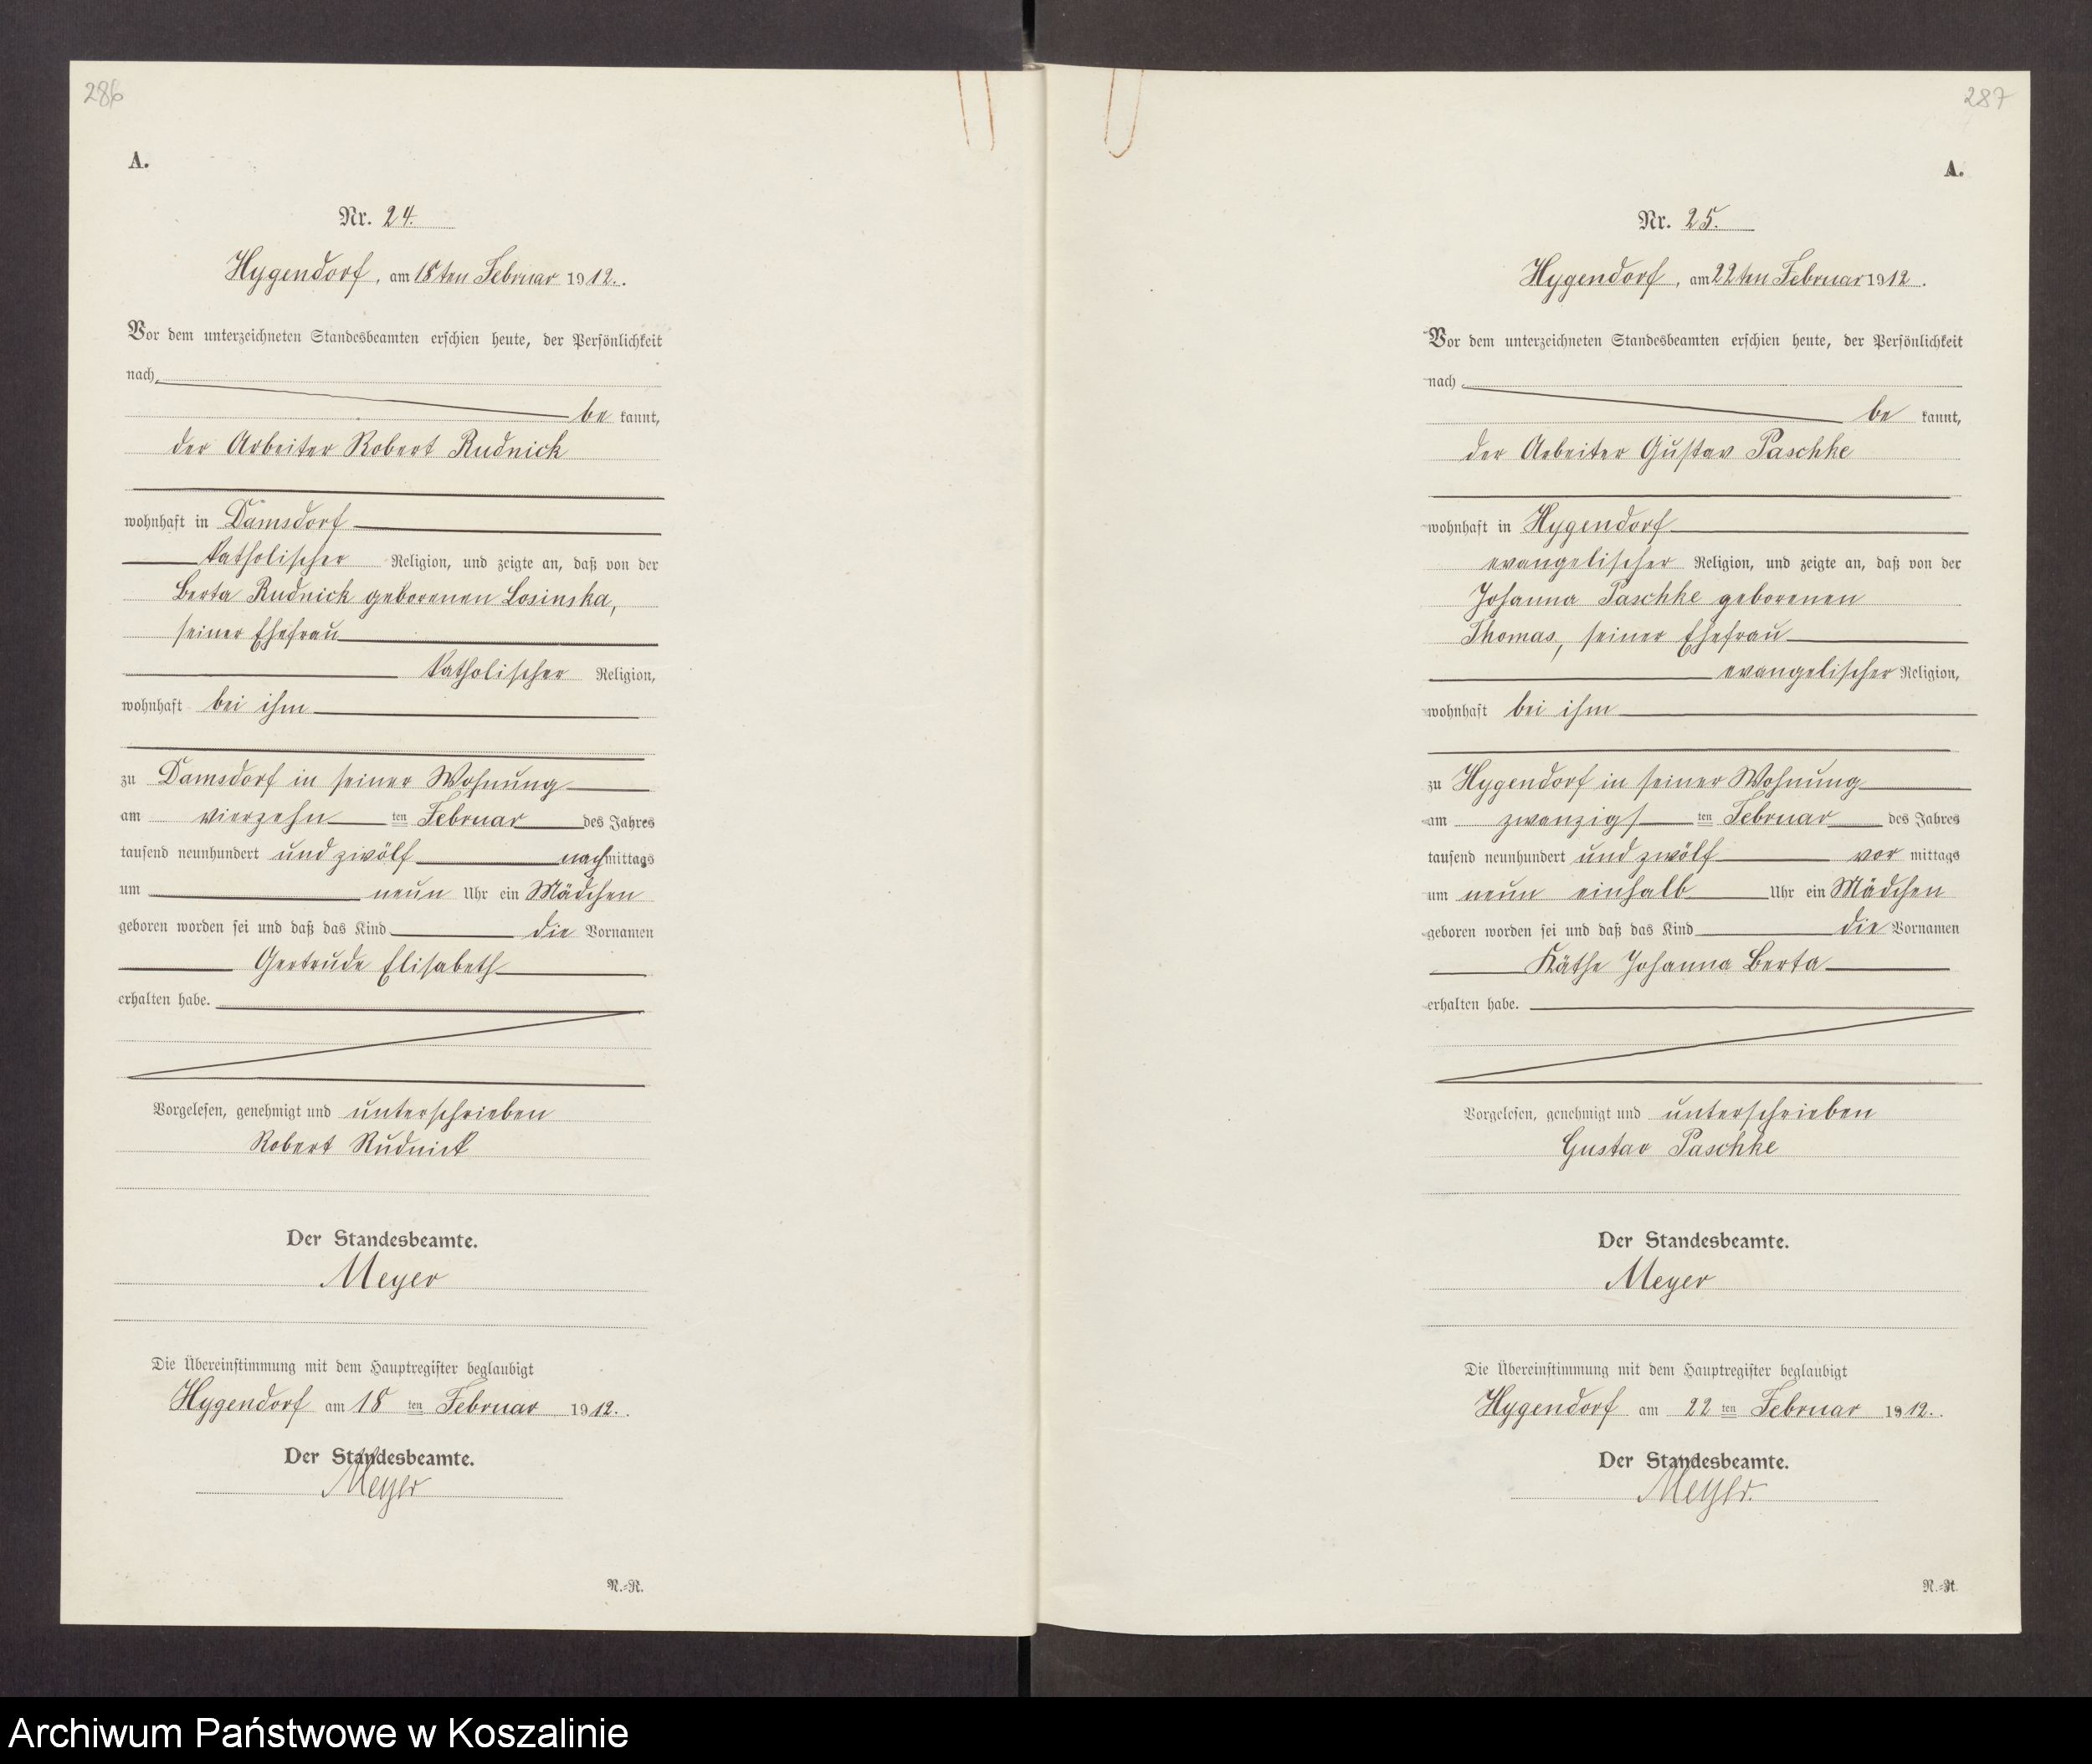 286
A.
Nr. 24.
Hygendorf, am 18ten Februar 1912.
Vor dem unterzeichneten Standesbeamten erschien heute, der Persönlichkeit
nach
be kannt,
der Arbeiter Robert Rudnick
wohnhaft in Damsdorf
katholischer Religion, und zeigte an, daß von der
Berta Rudnick geborenen Losinska,
seiner Ehefrau
katholischer Religion,
wohnhaft bei ihm
zu Damsdorf in seiner Wohnung
am vierzehn ten Februar des Jahres
tausend neunhundert und zwölf nachmittags
um neun Uhr ein Mädchen
geboren worden sei und daß das Kind die Vornamen
Gertrude Elisabeth
erhalten habe.
Vorgelesen, genehmigt und unterschrieben
Robert Rudnick
Der Standesbeamte.
Meyer
Die Übereinstimmung mit dem Hauptregister beglaubigt
Hygendorf am 18 ten Februar 1912.
Der Standesbeamte.
Meyer
N.=R.
287
A.
Nr. 25.
Hygendorf, am 22ten Februar 1912.
Vor dem unterzeichneten Standesbeamten erschien heute, der Persönlichkeit
nach
be kannt,
der Arbeiter Gustav Paschke
wohnhaft in Hygendorf
evangelischer Religion, und zeigte an, daß von der
Johanna Paschke geborenen
Thomas, seiner Ehefrau
evangelischer Religion,
wohnhaft bei ihm
zu Hygendorf in seiner Wohnung
am zwanzigs ten Februar des Jahres
tausend neunhundert und zwölf vor mittags
um neun einhalb Uhr ein Mädchen
geboren worden sei und daß das Kind die Vornamen
Käthe Johanna Berta
erhalten habe.
Vorgelesen, genehmigt und unterschrieben
Gustav Paschke
Der Standesbeamte.
Meyer
Die Übereinstimmung mit dem Hauptregister beglaubigt
Hygendorf am 22 ten Februar 1912.
Der Standesbeamte.
Meyer.
N.=R.
Archiwum Państwowe w Koszalinie